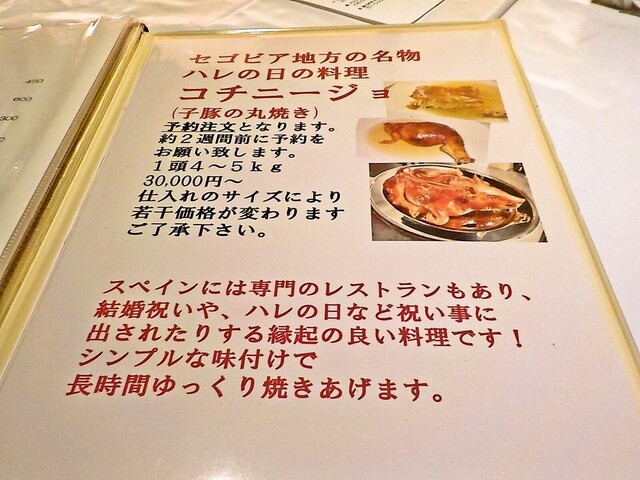 セゴビア地方の名物
ハレの日の料理
コチニージョ
(子豚の丸焼き)
予約注文となります。
約２週間前に予約を
お願い致します。
１頭４～５ｋｇ
30,000円～
仕入れのサイズにより
若干価格が変わります
ご了承下さい。
スペインには専門のレストランもあり、
結婚祝いや、ハレの日など祝い事に
出されたりする縁起の良い料理です！
シンプルな味付けで
長時間ゆっくり焼きあげます。
450
600
300